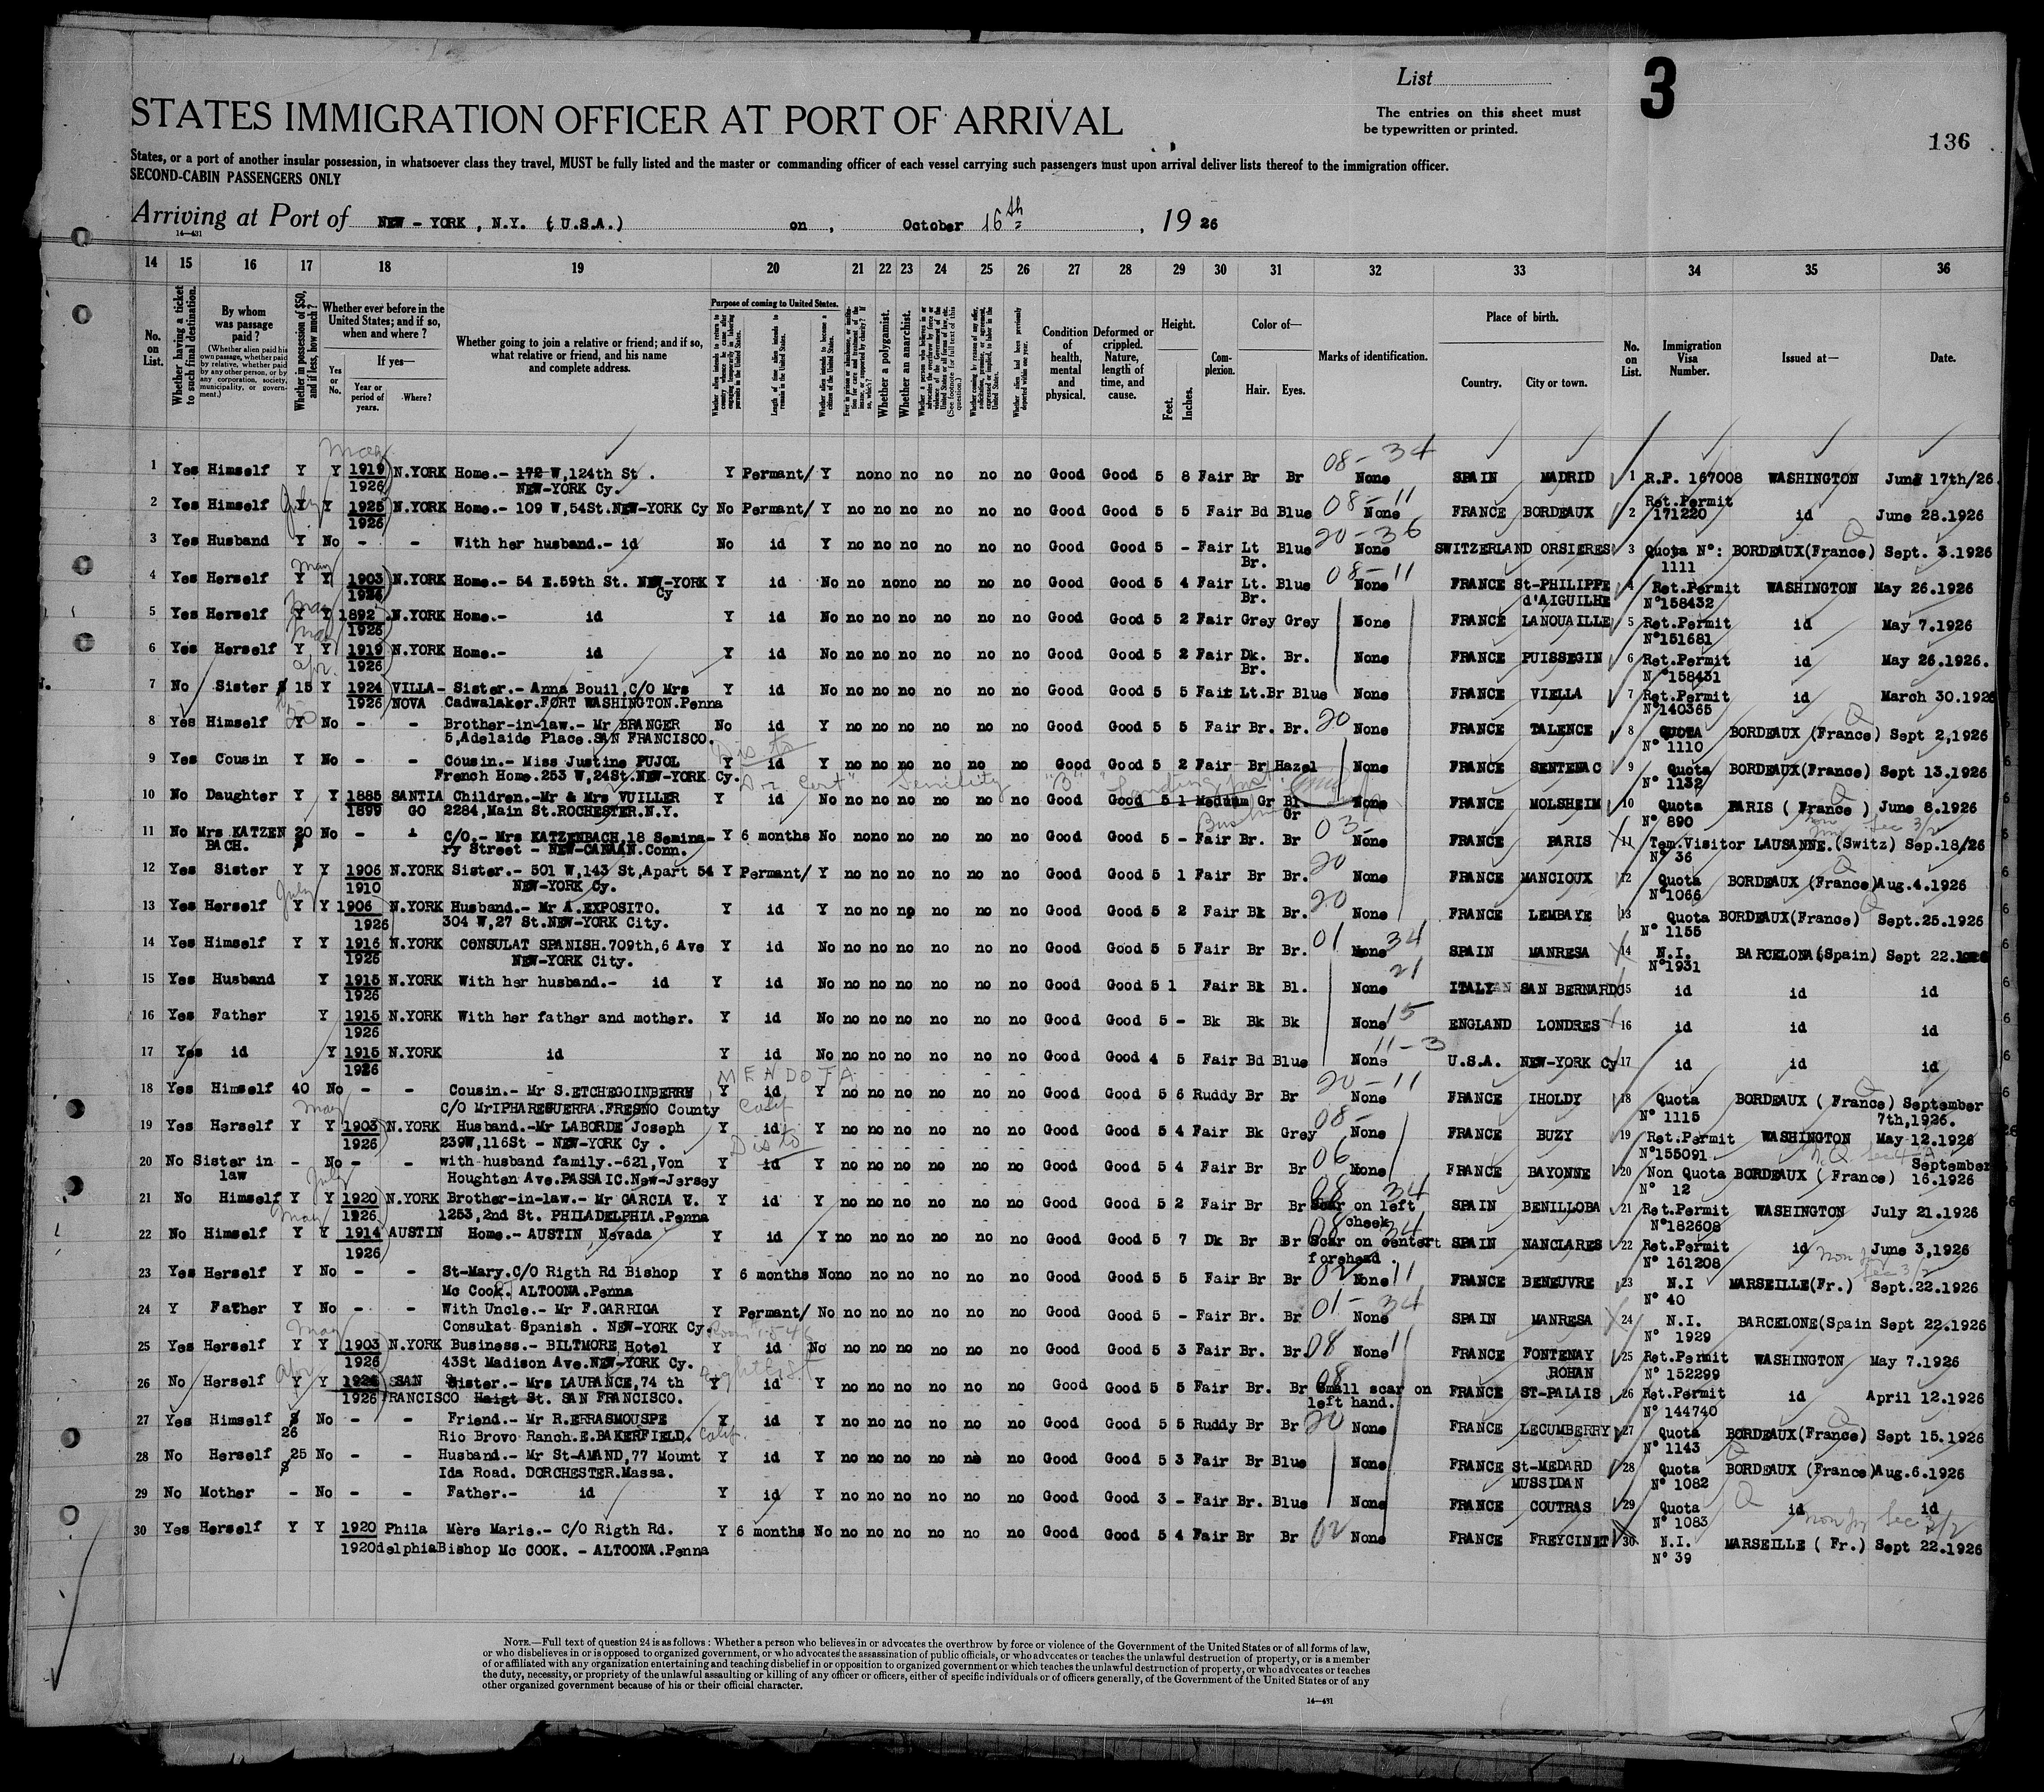 List
3
The entries on this sheet must
be typewritten or printed.
136
STATES IMMIGRATION OFFICER AT PORT OF ARRIVAL
States, or a port of another insular possession, in whatsoever class they travel, MUST be fully listed and the master or commanding officer of each vessel carrying such passengers must upon arrival deliver lists thereof to the immigration officer.
SECOND-CABIN PASSENGERS ONLY
Arriving at Port of NEW - YORK , N.Y. ( U.S.A.) on , October 16th , 19 26
14—431
14 15 16 17 18 19 20 21 22 23 24 25 26 27 28 29 30 31 32 33 34 35 36
No. on List.
Whether having a ticket to such final destination.
By whom was passage paid?
(Whether alien paid his own passage, whether paid by relative, whether paid by any other person, or by any corporation, society, municipality, or government.)
Whether in possession of $50, and if less, how much?
Whether ever before in the United States; and if so, when and where?
Yes or No.
If yes—
Year or period of years.
Where?
Whether going to join a relative or friend; and if so, what relative or friend, and his name and complete address.
Purpose of coming to United States.
Length of time alien intends to remain in the United States.
Whether alien intends to become a citizen of the United States.
Whether a polygamist.
Whether an anarchist.
Condition of health, mental and physical.
Deformed or crippled. Nature, length of time, and cause.
Height.
Feet. Inches.
Complexion.
Color of—
Hair. Eyes.
Marks of identification.
Place of birth.
Country. City or town.
No. on List.
Immigration Visa Number.
Issued at—
Date.
1 Yes Himself Y Y 1919 N.YORK Home.- 172 W,124th St . Y Permant/ Y no no no no no no Good Good 5 8 Fair Br Br 08-34 None SPAIN MADRID 1 R.P. 167008 WASHINGTON June 17th/26
1926 NEW-YORK Cy.
2 Yes Himself Y Y 1925 N.YORK Home.- 109 W,54St.NEW-YORK Cy No Permant/ Y no no no no no no Good Good 5 5 Fair Bd Blue 08-11 None FRANCE BORDEAUX 2 Ret.Permit 171220 id June 28.1926
1926
3 Yes Husband Y No - - With her husband.- id No id Y no no no no no no Good Good 5 - Fair Lt Br. Blue 20-36 None SWITZERLAND ORSIERES 3 Quota N°: 1111 BORDEAUX(France) Sept. 3.1926
4 Yes Herself Y Y 1903 N.YORK Home.- 54 E.59th St. NEW-YORK Cy Y id No no no no no no no Good Good 5 4 Fair Lt. Br. Blue 08-11 None FRANCE St-PHILIPPE d'AIGUILHE 4 Ret.Permit N°158432 WASHINGTON May 26.1926
5 Yes Herself Y Y 1892 N.YORK Home.- id Y id No no no no no no no Good Good 5 2 Fair Grey Grey None FRANCE LANOUAILLE 5 Ret.Permit N°151681 id May 7.1926
1926
6 Yes Herself Y Y 1919 N.YORK Home.- id Y id No no no no no no no Good Good 5 2 Fair Dk. Br. Br. None FRANCE PUISSEGIN 6 Ret.Permit N°158431 id May 26.1926.
1926
7 No Sister $ 15 Y 1924 VILLA- Sister.- Anna Bouil,C/O Mrs Y id No no no no no no no Good Good 5 5 Fair Lt.Br Blue None FRANCE VIELLA 7 Ret.Permit N°140365 id March 30.1926
1926 NOVA Cadwalaker.FORT WASHINGTON.Penna
8 Yes Himself Y No - - Brother-in-law.- Mr BRANGER No id Y no no no no no no Good Good 5 5 Fair Br. Br. 20 None FRANCE TALENCE 8 QUOTA N° 1110 BORDEAUX (France) Sept 2,1926
5,Adelaide Place.SAN FRANCISCO.
9 Yes Cousin Y No - - Cousin.- Miss Justine PUJOL Y id Y no no no no no no Good Good 5 2 Fair Br Hazel None FRANCE SENTENAC 9 Quota N° 1132 BORDEAUX(France) Sept 13.1926
French Home.253 W,24St.NEW-YORK Cy.
Dr. Cert "Senility "B"
10 No Daughter Y Y 1885 SANTIA Children.-Mr & Mrs VUILLER Y id No no no no no no no Good Good 5 1 Medium Gr Bl Gr None FRANCE MOLSHEIM 10 Quota N° 890 PARIS ( France ) June 8.1926
1899 GO 2284,Main St.ROCHESTER.N.Y.
11 No Mrs KATZEN BACH. 20 $ No - - C/O.- Mrs KATZENBACH,18 Semina- Y 6 months No no no no no no no Good Good 5 - Fair Br. Br 03- None FRANCE PARIS 11 Tem.Visitor N° 36 LAUSANNE.(Switz) Sep.18/26
ry Street - NEW-CANAAN.Conn.
12 Yes Sister Y Y 1906 N.YORK Sister.- 501 W,143 St,Apart 54 Y Permant/ Y no no no no no no Good Good 5 1 Fair Br Br. 20 None FRANCE MANCIOUX 12 Quota N°1066 BORDEAUX (France) Aug.4.1926
1910 NEW-YORK Cy.
13 Yes Herself Y Y 1906 N.YORK Husband.- Mr A.EXPOSITO. Y id Y no no no no no no Good Good 5 2 Fair Bk Br. 20 None FRANCE LEMBAYE 13 Quota N° 1155 BORDEAUX(France) Sept.25.1926
1926 304 W,27 St.NEW-YORK City.
14 Yes Himself Y Y 1916 N.YORK CONSULAT SPANISH.709th,6 Ave Y id No no no no no no no Good Good 5 5 Fair Br Br. 01 34 None SPAIN MANRESA 14 N.I. N°1931 BARCELONA(Spain) Sept 22.1926
1926 NEW-YORK City.
15 Yes Husband Y 1915 N.YORK With her husband.- id Y id No no no no no no no Good Good 5 1 Fair Bk Bl. 21 None ITALY SAN BERNARDO 15 id id id
1926
16 Yes Father Y 1915 N.YORK With her father and mother. Y id No no no no no no no Good Good 5 - Bk Bk Bk None 15 ENGLAND LONDRES 16 id id id
1926
17 Yes id Y 1915 N.YORK id Y id No no no no no no no Good Good 4 5 Fair Bd Blue 11-3 None U.S.A. NEW-YORK Cy 17 id id id
1926
MENDOTA
18 Yes Himself 40 No - - Cousin.- Mr S.ETCHEGOINBERRY Y id Y no no no no no no Good Good 5 6 Ruddy Br Br 20-11 None FRANCE IHOLDY 18 Quota N° 1115 BORDEAUX ( France) September 7th,1926.
C/O MrIPHARESUERRA.FRESNO County Calif
19 Yes Herself Y Y 1903 N.YORK Husband.-Mr LABORDE Joseph Y id Y no no no no no no Good Good 5 4 Fair Bk Grey 08- None FRANCE BUZY 19 Ret.Permit N°155091 WASHINGTON May 12.1926
1926 239W,116St - NEW-YORK Cy .
20 No Sister in law - No - - with husband family.-621,Von Y id Y no no no no no no Good Good 5 4 Fair Br Br 06 None FRANCE BAYONNE 20 Non Quota N° 12 BORDEAUX ( France) September 16.1926
Houghten Ave.PASSAIC.New-Jersey
21 No Himself Y Y 1920 N.YORK Brother-in-law.- Mr GARCIA V. Y id Y no no no no no no Good Good 5 2 Fair Br Br 08 34 Scar on left cheek SPAIN BENILLOBA 21 Ret.Permit N°182608 WASHINGTON July 21.1926
1926 1253,2nd St. PHILADELPHIA.Penna
22 No Himself Y Y 1914 AUSTIN Home.- AUSTIN Nevada Y id Y no no no no no no Good Good 5 7 Dk Br Br 08 34 Scar on center forehead SPAIN NANCLARES 22 Ret.Permit N° 161208 id June 3,1926
1926
23 Yes Herself Y No - - St-Mary.C/O Rigth Rd Bishop Y 6 months No no no no no no no Good Good 5 5 Fair Br Br 02 None 11 FRANCE BENEUVRE 23 N.I N° 40 MARSEILLE(Fr.) Sept.22.1926
Mc Cook. ALTOONA.Penna
24 Y Father Y No - - With Uncle.- Mr F.GARRIGA Y Permant/ No no no no no no no Good Good 5 - Fair Br. Br 01-34 None SPAIN MANRESA 24 N.I. N° 1929 BARCELONE(Spain Sept 22.1926
Consulat Spanish . NEW-YORK Cy.
25 Yes Herself Y Y 1903 N.YORK Business.- BILTMORE Hotel Y id No no no no no no no Good Good 5 3 Fair Br. Br. 08 None 11 FRANCE FONTENAY ROHAN 25 Ret.Permit N° 152299 WASHINGTON May 7.1926
1926 43St Madison Ave.NEW-YORK Cy.
26 No Herself Y Y 1924 SAN Sister.- Mrs LAURANCE,74 th Y id Y no no no no no no Good Good 5 5 Fair Br. Br 08 Small scar on left hand. FRANCE ST-PALAIS 26 Ret.Permit N° 144740 id April 12.1926
1926 FRANCISCO Haigt St. SAN FRANCISCO.
27 Yes Himself $ 26 No - - Friend.- Mr R.ERRASMOUSPE Y id Y no no no no no no Good Good 5 5 Ruddy Br Br 20 None FRANCE LECUMBERRY 27 Quota N° 1143 BORDEAUX(France) Sept 15.1926
Rio Brovo Ranch.E.BAKERFIELD. Calif.
28 No Herself $ 25 No - - Husband.- Mr St-AMAND,77 Mount Y id Y no no no no no no Good Good 5 3 Fair Br Blue None FRANCE St-MEDARD MUSSIDAN 28 Quota N° 1082 BORDEAUX (France) Aug.6.1926
Ida Road. DORCHESTER.Massa.
29 No Mother - No - - Father.- id Y id Y no no no no no no Good Good 3 - Fair Br. Blue None FRANCE COUTRAS 29 Quota N° 1083 id id
30 Yes Herself Y Y 1920 Phila Mère Marie.- C/O Rigth Rd. Y 6 months No no no no no no no Good Good 5 4 Fair Br Br 02 None FRANCE FREYCINET 30 N.I. N° 39 MARSEILLE ( Fr.) Sept 22.1926
1920 delphia Bishop Mc COOK. - ALTOONA.Penna
NOTE.—Full text of question 24 is as follows: Whether a person who believes in or advocates the overthrow by force or violence of the Government of the United States or of all forms of law,
or who disbelieves in or is opposed to organized government, or who advocates the assassination of public officials, or who advocates or teaches the unlawful destruction of property, or is a member
of or affiliated with any organization entertaining and teaching disbelief in or opposition to organized government or which teaches the unlawful destruction of property, or who advocates or teaches
the duty, necessity, or propriety of the unlawful assaulting or killing of any officer or officers, either of specific individuals or of officers generally, of the Government of the United States or of any
other organized government because of his or their official character.
14—431